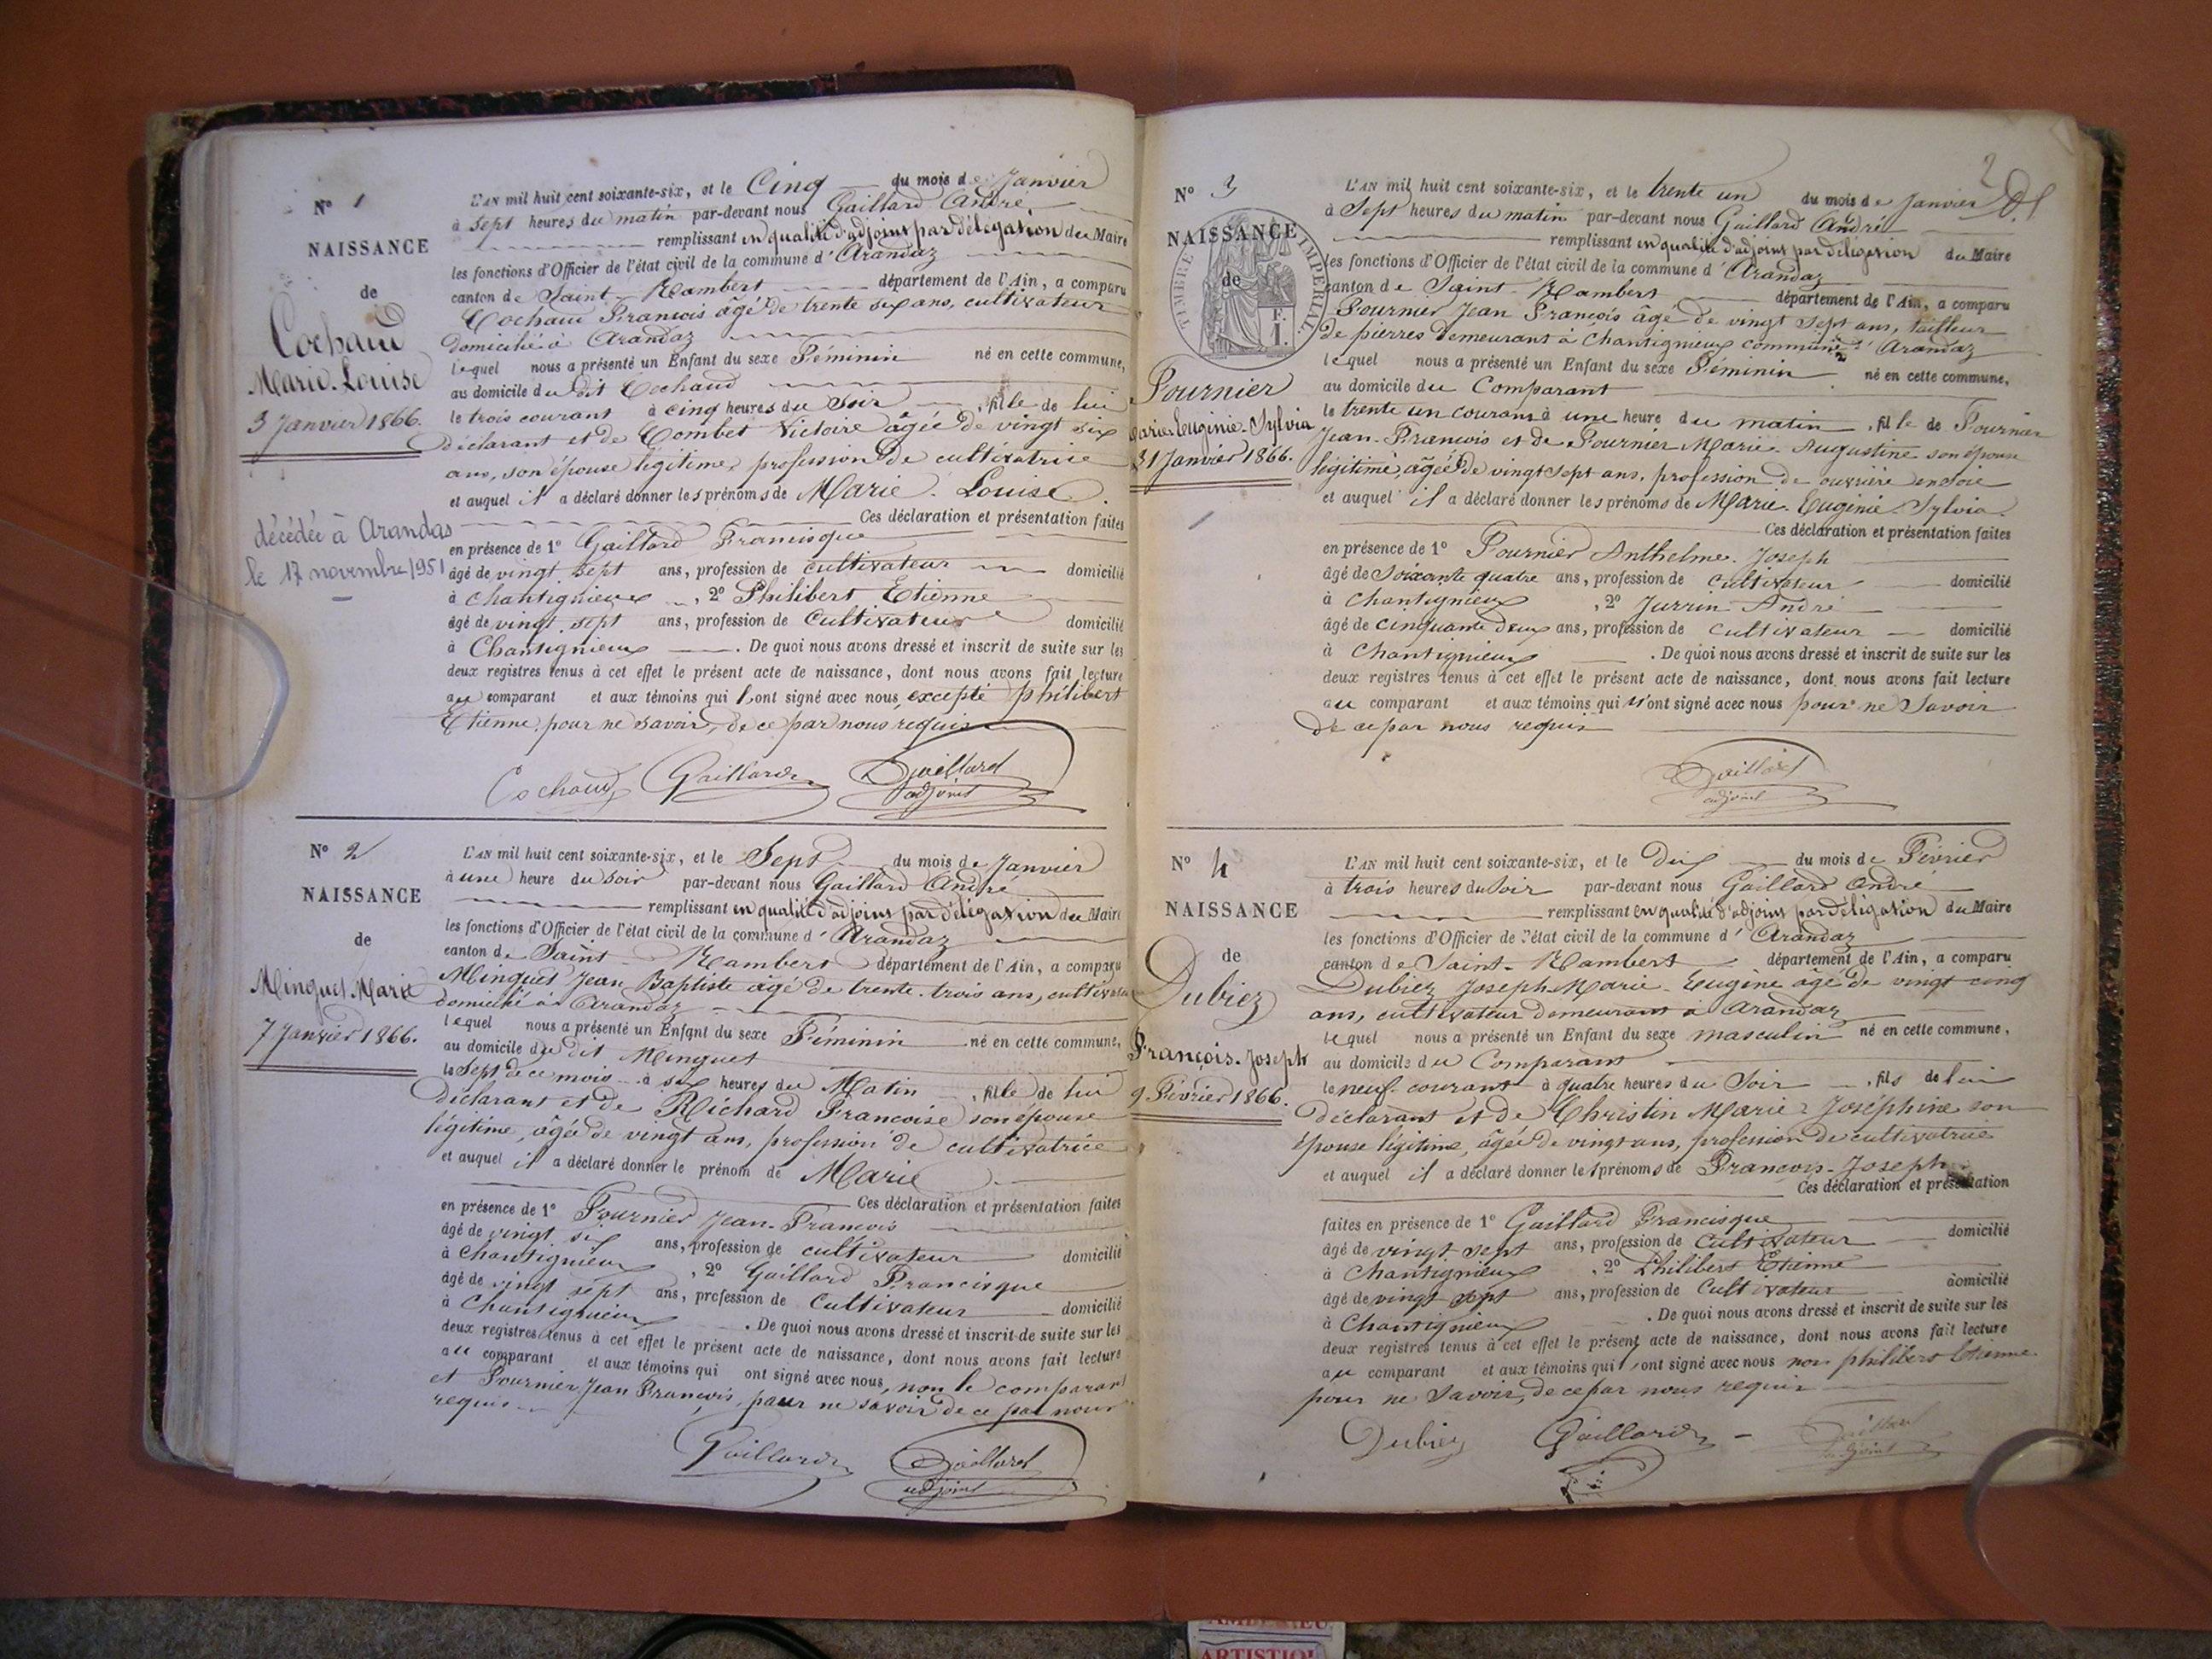 N° 1
NAISSANCE
de
Cochaud
Marie-Louise
3 Janvier 1866.
décédée à Arandas
le 17 novembre 1951
L'AN mil huit cent soixante-six, et le Cinq du mois de Janvier
à sept heures du matin par-devant nous Gaillard André,
remplissant en qualité d'adjoint par délégation du Maire
les fonctions d'Officier de l'état civil de la commune d'Arandaz
canton de Saint-Rambert département de l'Ain, a comparu
Cochaud François âgé de trente six ans, cultivateur
domicilié à Arandaz
lequel nous a présenté un Enfant du sexe Féminin né en cette commune,
au domicile du dit Cochaud
le trois courant à cinq heures du Soir, fille de lui
déclarant et de Combet Victoire âgée de vingt six
ans, son épouse légitime, profession de cultivatrice
et auquel il a déclaré donner les prénoms de Marie. Louise.
Ces déclaration et présentation faites
en présence de 1° Gaillard Francisque
âgé de vingt sept ans, profession de cultivateur domicilié
à Chantignieux, 2° Philibert Etienne
âgé de vingt sept ans, profession de Cultivateur domicilié
à Chantignieux. De quoi nous avons dressé et inscrit de suite sur les
deux registres tenus à cet effet le présent acte de naissance, dont nous avons fait lecture
au comparant et aux témoins qui l'ont signé avec nous, excepté philibert
Etienne, pour ne savoir, de ce par nous requis
Cochaud Gaillard Gaillard
adjoint
N° 2
NAISSANCE
de
Minguet Marie
7 Janvier 1866.
L'AN mil huit cent soixante-six, et le Sept du mois de Janvier
à une heure du soir par-devant nous Gaillard André
remplissant en qualité d'adjoint par délégation du Maire
les fonctions d'Officier de l'état civil de la commune d'Arandaz
canton de Saint-Rambert département de l'Ain, a comparu
Minguet Jean Baptiste âgé de trente-trois ans, cultivateur
domicilié à Arandaz
lequel nous a présenté un Enfant du sexe Féminin né en cette commune,
au domicile du dit Minguet
le Sept de ce mois à six heures du Matin, fille de lui
déclarant et de Richard Françoise son épouse
légitime, âgée de vingt ans, profession de cultivatrice
et auquel il a déclaré donner le prénom de Marie
Ces déclaration et présentation faites
en présence de 1° Fournier Jean-François
âgé de vingt six ans, profession de cultivateur domicilié
à Chantignieux, 2° Gaillard Francisque
âgé de vingt sept ans, profession de Cultivateur domicilié
à Chantignieux. De quoi nous avons dressé et inscrit de suite sur les
deux registres tenus à cet effet le présent acte de naissance, dont nous avons fait lecture
au comparant et aux témoins qui ont signé avec nous, non le comparant
et Fournier Jean François, pour ne savoir de ce par nous
requis
Gaillard Gaillard
adjoint
2
N° 3
NAISSANCE
de
TIMBRE IMPÉRIAL.
F. I.
Fournier
Marie-Eugénie-Sylvia
31 Janvier 1866.
L'AN mil huit cent soixante-six, et le trente un du mois de Janvier
à Sept heures du matin par-devant nous Gaillard André
remplissant en qualité d'adjoint par délégation du Maire
les fonctions d'Officier de l'état civil de la commune d'Arandaz
canton de Saint-Rambert département de l'Ain, a comparu
Fournier Jean François âgé de vingt sept ans, tailleur
de pierres demeurant à Chantignieux commune d'Arandaz
lequel nous a présenté un Enfant du sexe Féminin né en cette commune,
au domicile du Comparant
le trente un courant à une heure du matin, fille de Fournier
Jean-François et de Fournier Marie-Augustine son épouse
légitime, âgée de vingt sept ans, profession de ouvrière en soie
et auquel il a déclaré donner les prénoms de Marie-Eugénie-Sylvia.
Ces déclaration et présentation faites
en présence de 1° Fournier Anthelme-Joseph
âgé de Soixante quatre ans, profession de cultivateur domicilié
à Chantignieux, 2° Jurrin André
âgé de cinquante deux ans, profession de cultivateur domicilié
à Chantignieux. De quoi nous avons dressé et inscrit de suite sur les
deux registres tenus à cet effet le présent acte de naissance, dont nous avons fait lecture
au comparant et aux témoins qui n'ont signé avec nous pour ne Savoir
de ce par nous requis
Gaillard
adjoint
N° 4
NAISSANCE
de
Dubiez
François-Joseph
9 Février 1866.
L'AN mil huit cent soixante-six, et le dix du mois de Février
à trois heures du Soir par-devant nous Gaillard André
remplissant en qualité d'adjoint par délégation du Maire
les fonctions d'Officier de l'état civil de la commune d'Arandaz
canton de Saint-Rambert département de l'Ain, a comparu
Dubiez Joseph-Marie-Eugène âgé de vingt cinq
ans, cultivateur demeurant à Arandaz
lequel nous a présenté un Enfant du sexe masculin né en cette commune,
au domicile du Comparant
le neuf courant à quatre heures du Soir, fils de lui
déclarant et de Christin Marie-Joséphine son
épouse légitime, âgée de vingt ans, profession de cultivatrice
et auquel il a déclaré donner les prénoms de François-Joseph
Ces déclaration et présentation
faites en présence de 1° Gaillard Francisque
âgé de vingt sept ans, profession de Cultivateur domicilié
à Chantignieux, 2° Philibert Etienne
âgé de vingt sept ans, profession de Cultivateur domicilié
à Chantignieux. De quoi nous avons dressé et inscrit de suite sur les
deux registres tenus à cet effet le présent acte de naissance, dont nous avons fait lecture
au comparant et aux témoins qui l'ont signé avec nous non philibert Etienne
pour ne savoir, de ce par nous requis
Dubiez Gaillard Gaillard
adjoint
ARTISTIQU